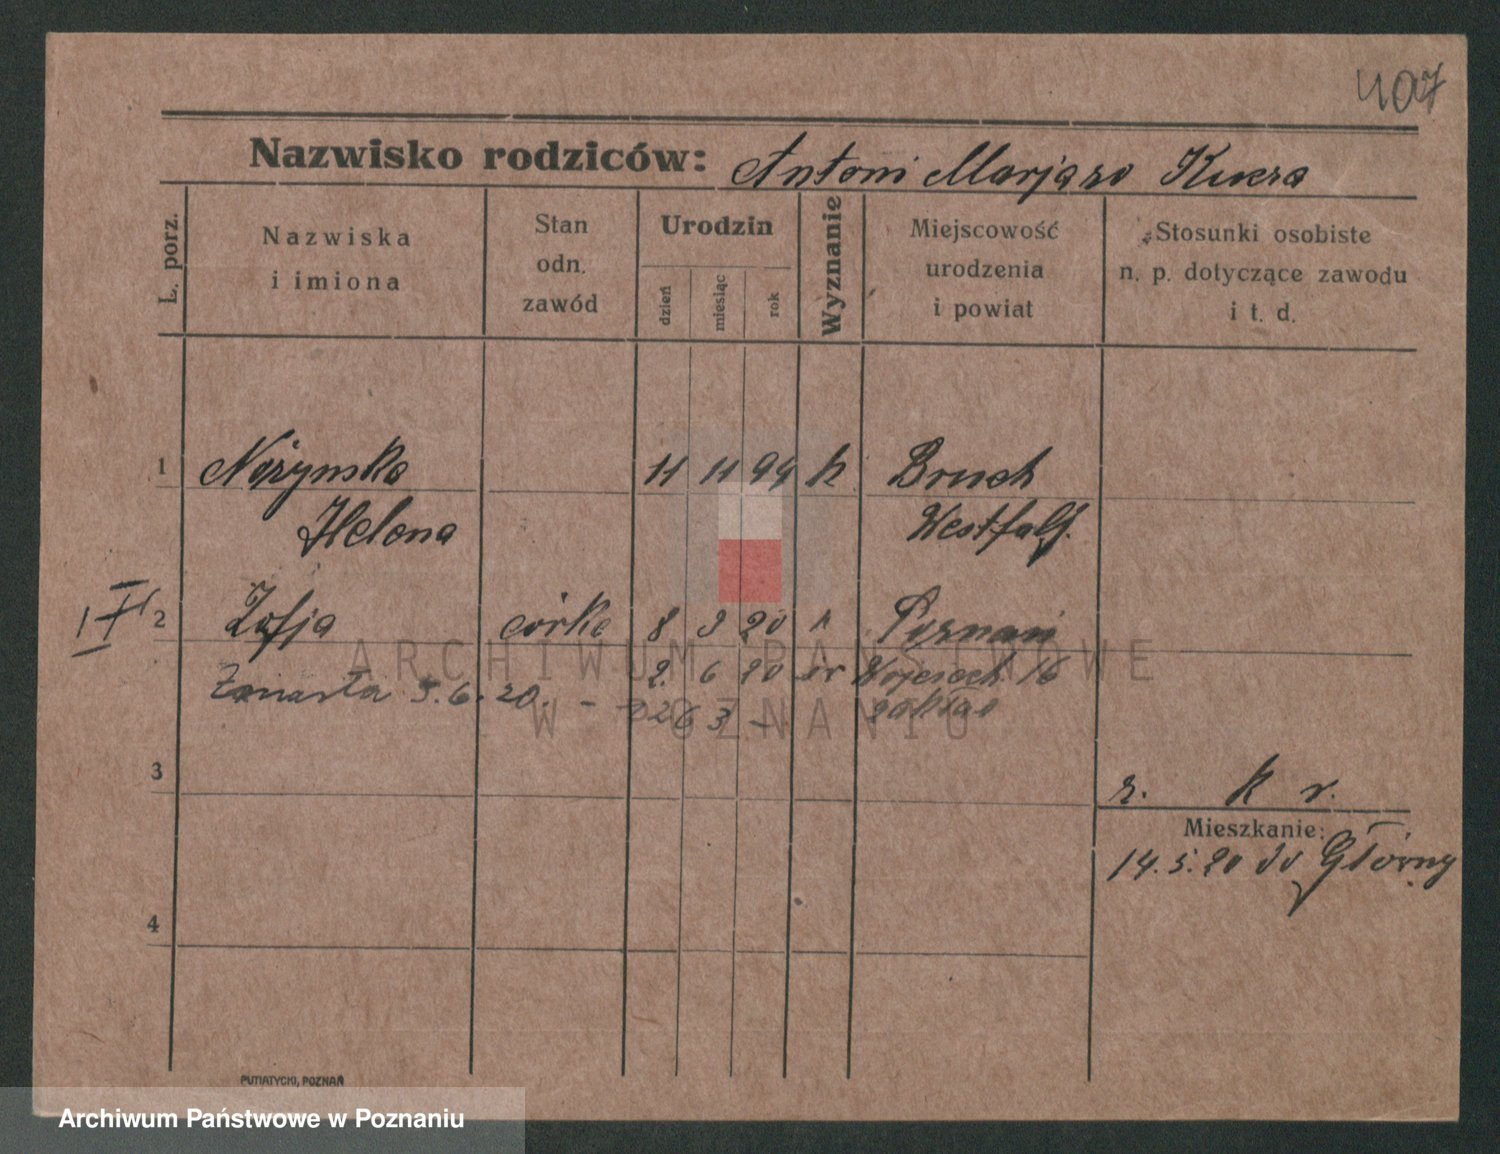 407
Nazwisko rodziców: Antoni Marjazo Kucza
L. porz.
Nazwiska i imiona
Stan odn. zawód
Urodzin
dzień
miesiąc
rok
Wyznanie
Miejscowość urodzenia i powiat
Stosunki osobiste n. p. dotyczące zawodu i t. d.
1 11 11 94 k Bruch
Helena Westfalf.
2 Zofja córka 8 3 20 k Poznań
2. 6 20 Wojciech 16
Zmarła 5.6.20.
3
k r.
Mieszkanie:
14.5.20 Główny
4
PUTIATYCKI, POZNAŃ
ARCHIWUM PAŃSTWOWE
W POZNANIU
Archiwum Państwowe w Poznaniu